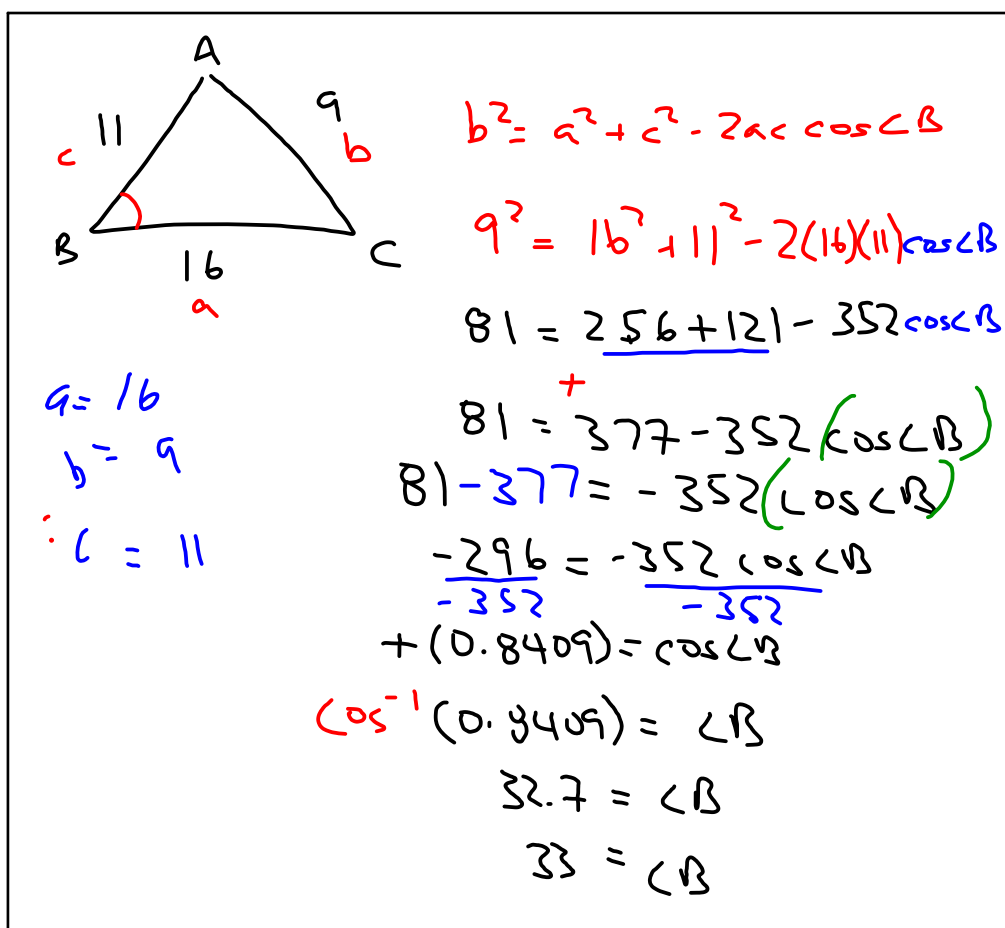 A
11
c
9
b
B
16
a
C
a = 16
b = 9
: c = 11
b² = a² + c² - 2ac cos∠B
9² = 16² + 11² - 2(16)(11)cos∠B
81 = 256 + 121 - 352 cos∠B
+
81 = 377 - 352 (cos∠B)
81 - 377 = - 352 (cos∠B)
-296 = -352 cos∠B
-352 -352
+ (0.8409) = cos∠B
cos⁻¹ (0.8409) = ∠B
32.7 = ∠B
33 = ∠B